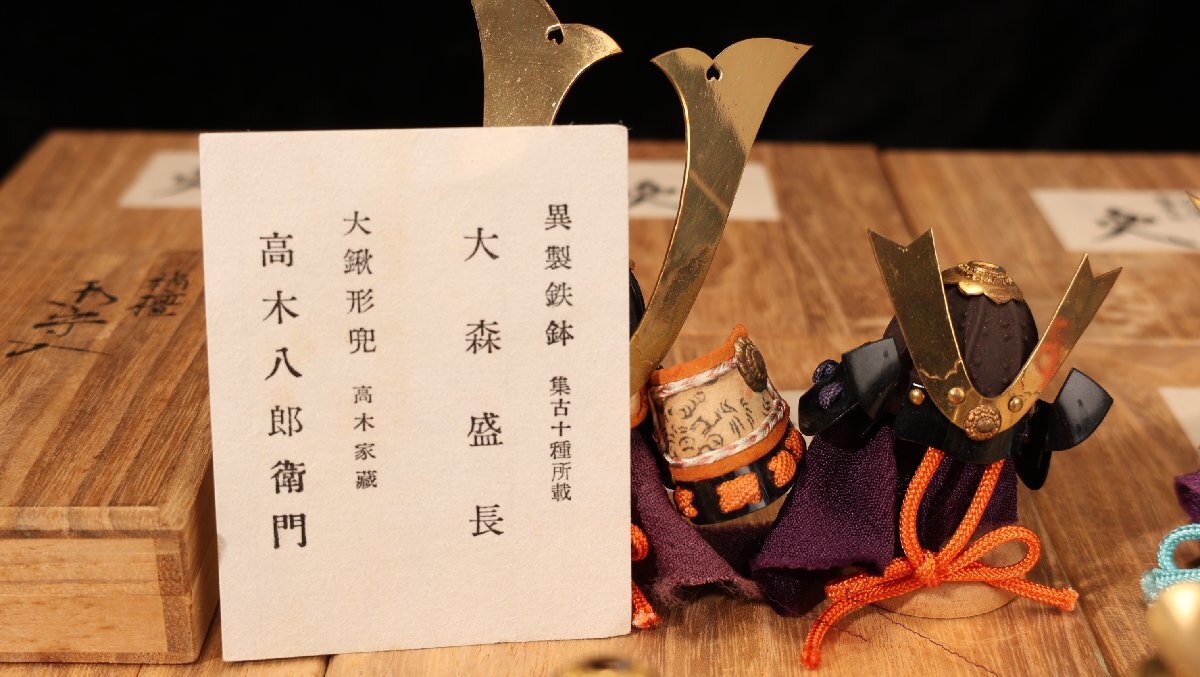 異製鉄鉢 集古十種所載
大森盛長
大鍬形兜 高木家藏
高木八郎衛門